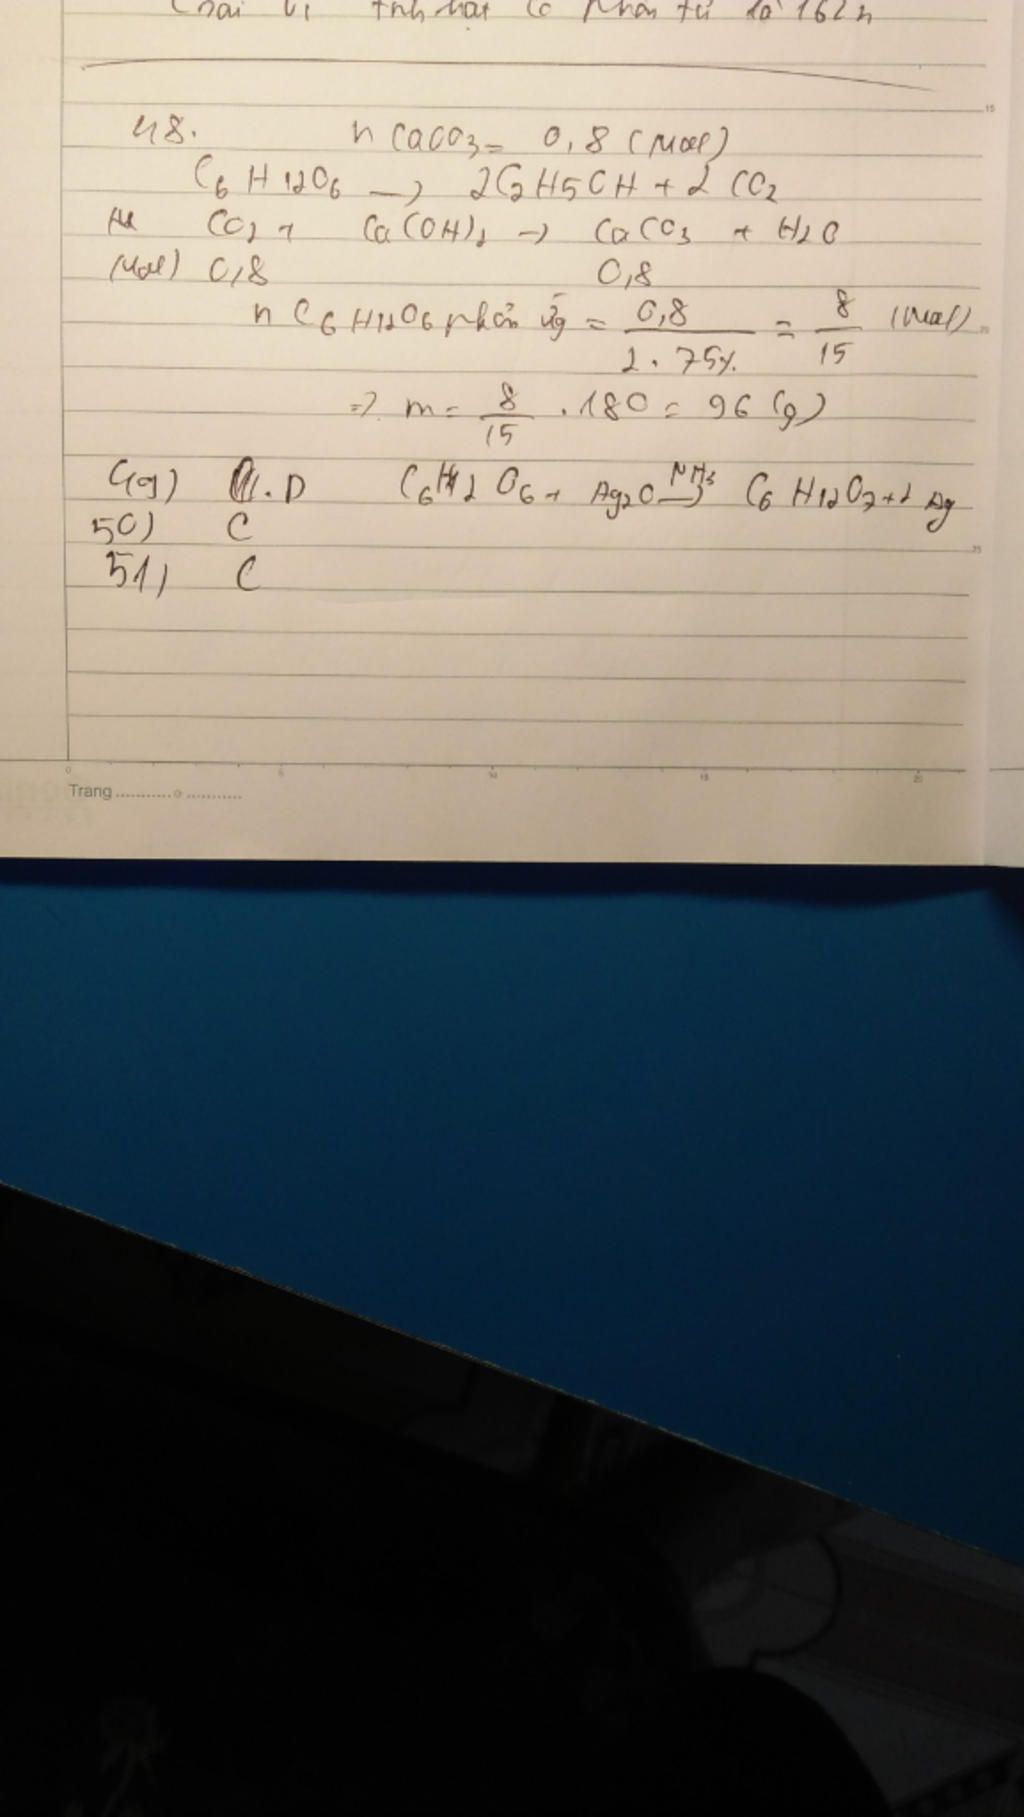 tinh bột có phân tử là 162n
48. n CaCO3 = 0,8 (mol)
C6H12O6 → 2C2H5OH + 2CO2
CO2 + Ca(OH)2 → CaCO3 + H2O
(mol) 0,8 0,8
n C6H12O6 phản ứg = 0,8 / 2.75% = 8/15 (mol)
=> m = 8/15 . 180 = 96 (g)
49) D C6H12O6 + Ag2O NH3→ C6H12O7 + 2Ag
50) C
51) C
0 5 10 15 20
15
20
25
Trang